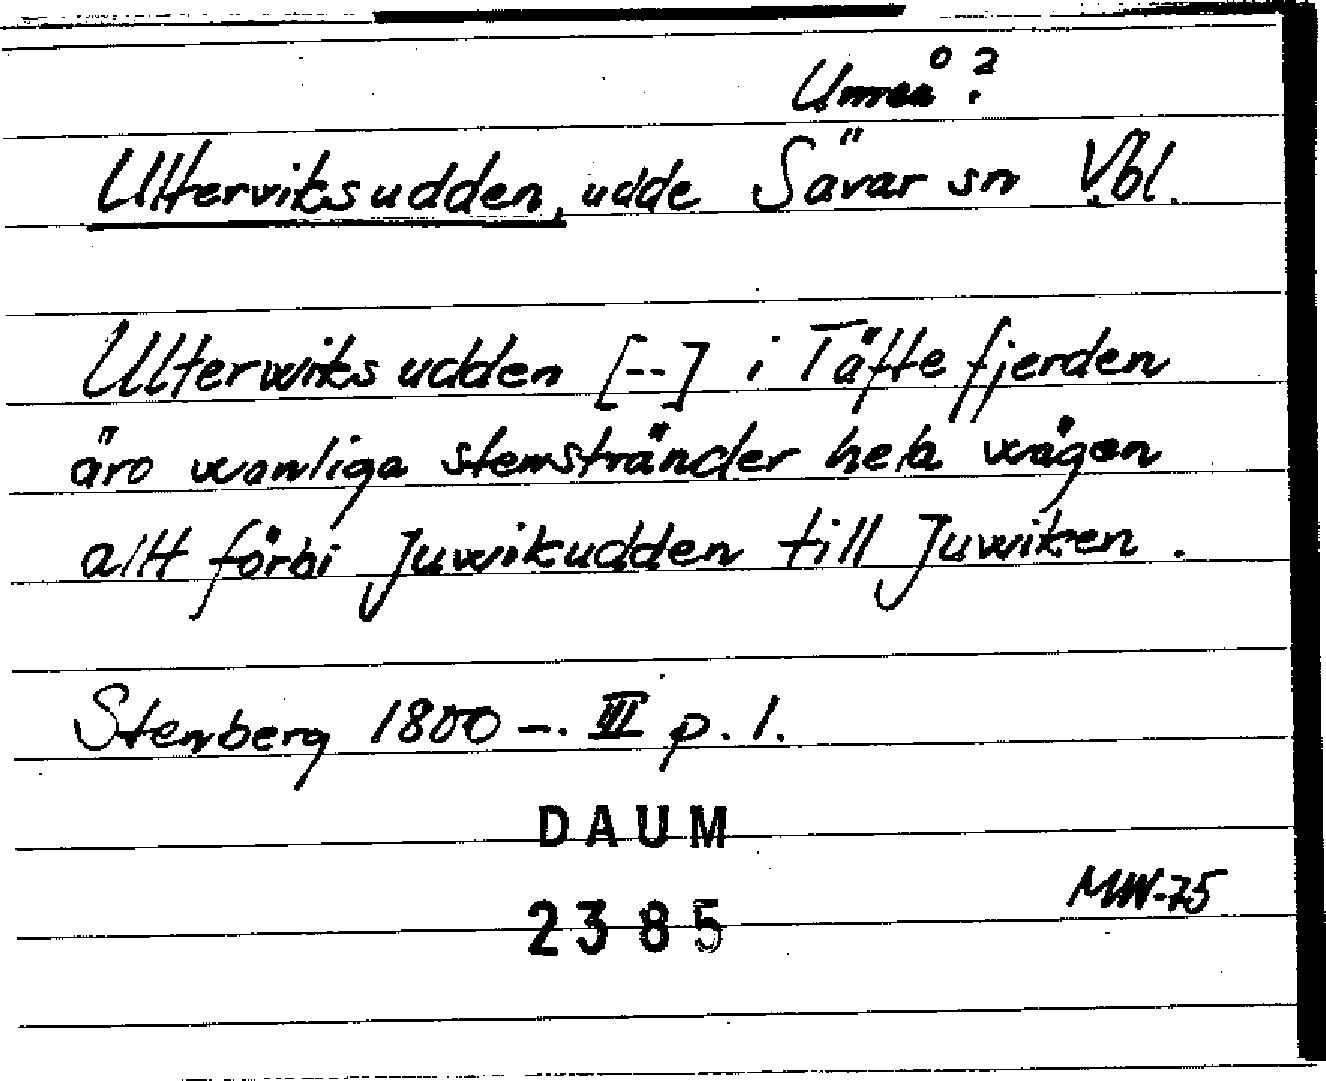 Umeå?
Ulterviksudden, udde Sävar sn Vbl.
Ulterwiksudden [--] i Täftefjerden
äro wanliga stenstränder hela wägen
alt förbi Juwikudden till Juwiken.
Stenberg 1800-. III p. 1.
DAUM
MW-75
2385